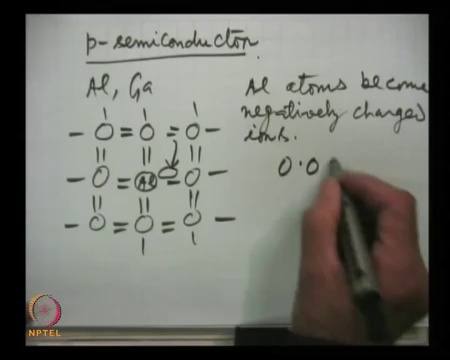 p-semiconductor.
Al, Ga
Al atoms become
negatively charged
ions.
Al
0.0
NPTEL